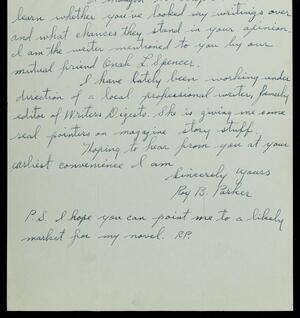 learn whether you've looked my writings over
and what chances they stand in your opinion.
I am the writer mentioned to you by our
mutual friend Onah L. Spencer.
I have lately been working under
direction of a local professional writer, formerly
editor of Writers Digests. She is giving me some
real pointers on magazine story stuff.
Hoping to hear from you at your
earliest convenience I am
Sincerely yours
Roy B. Parker
P.S. I hope you can point me to a likely
market for my novel. RP.